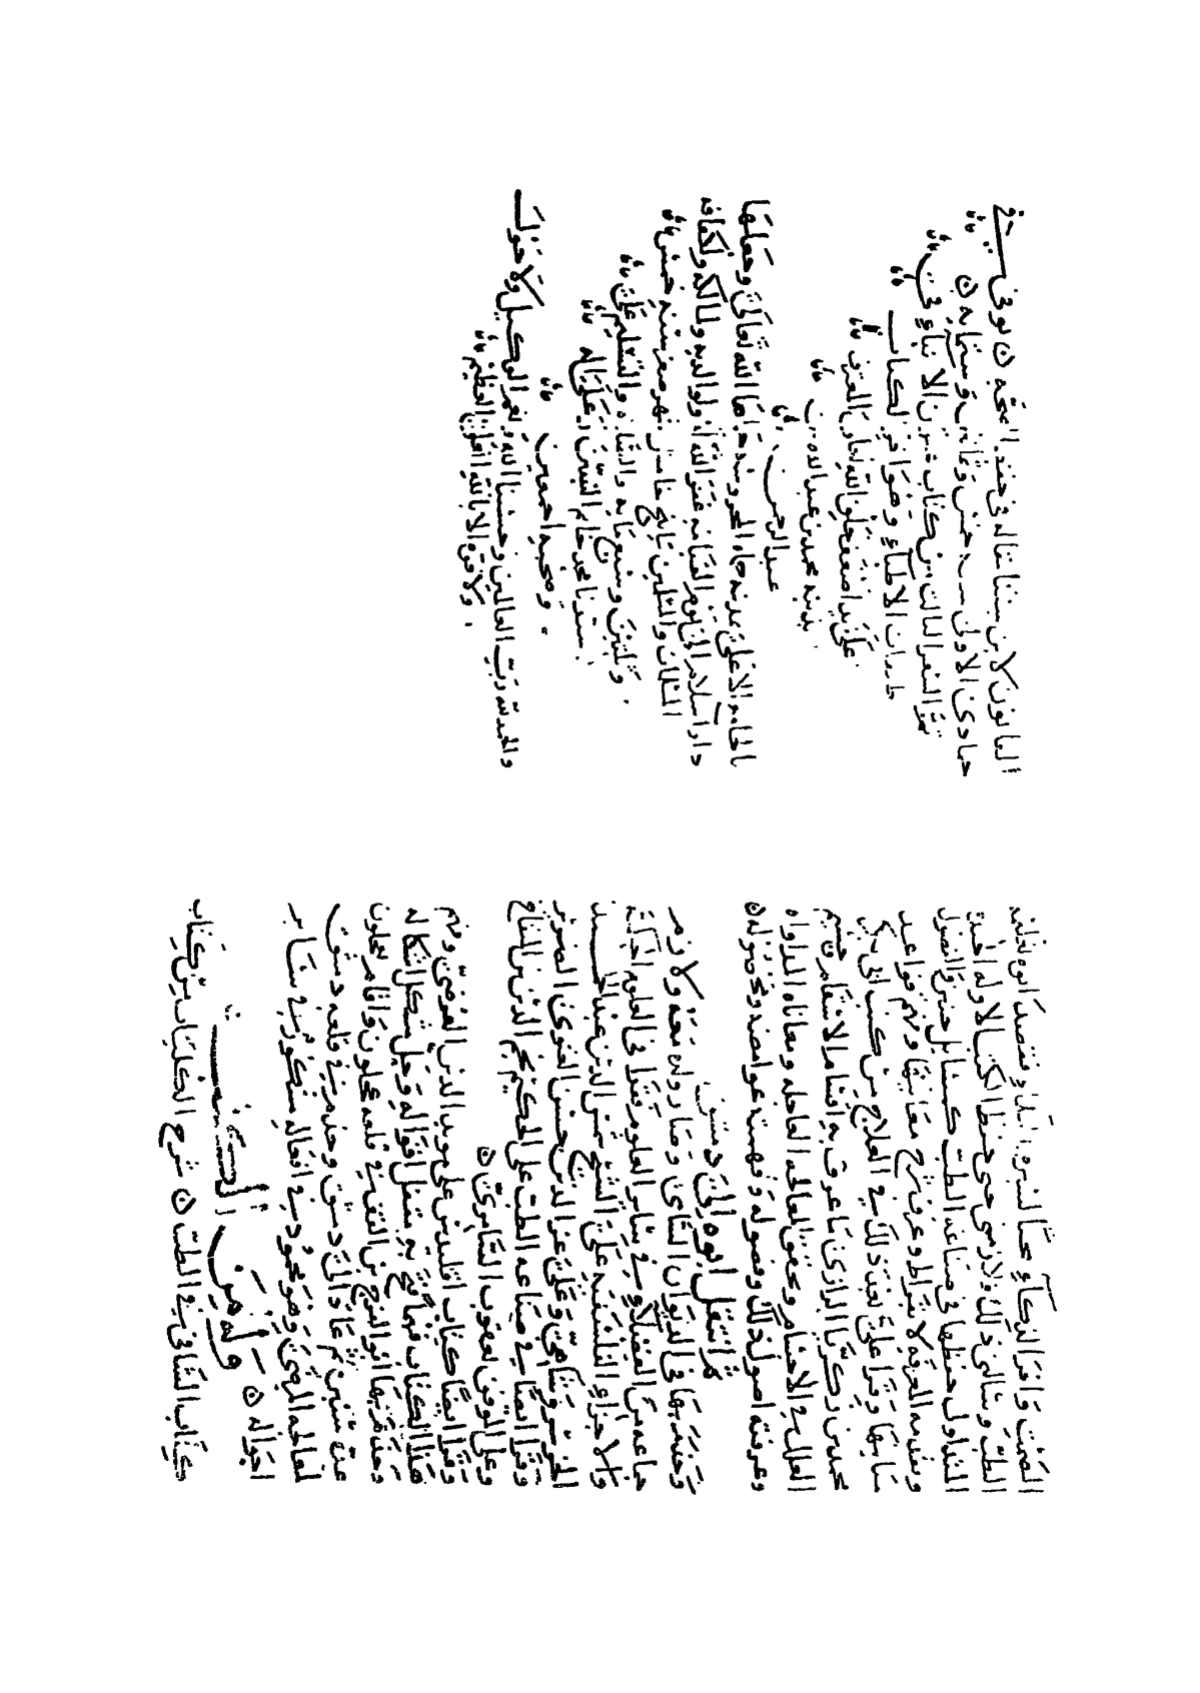 الصمت وافر الذكاء محبا لسيرة العلماء فقصد ابوه تعليمه
الطب وسالني ذلك ولازمني حتى حفظ الكتب الاوله
المتداول حفظها في صناعه الطب كمسايل حنين والفصول
وتقدمه المعرفه لابقراط وعرف شرح معانيها وفهم قواعد
مبانيها وقرا علي بعد ذلك في العلاج من كتب ابي بكر
محمد بن زكريا الرازي ما عرف به اقسام الاسقام وجسيم
العلل في الاجسام وتحقق معالجه المعالجه ومعاناه المداواه
وعرفته اصول ذلك وفصوله وفهمته غوامضه ومحصوله
ثم انتقل ابوه الى دمشق
وخدم بها في الديوان السامي وصار ولده معه ولازم
جماعه من الفضلاء وقرا في العلوم الحكميه
والاجزاء الفلسفيه على الشيخ شمس الدين عبد الحميد
الخسروشاهي وعلى عز الدين حسن الغنوي الضرير
وقرا ايضا في صناعه الطب على الحكيم نجم الدين بن المنفاخ
وعلى الموفق يعقوب السامري
وقرا ايضا كتاب اقليدس على مويد الدين العرضي وفهم
هذا الكتاب فهما فتح به مقفل اقواله وحل مشكل اشكاله
وخدم بها ابو الفرج بن القف في قلعه عجلون واقام بعجلون
عدة سنين ثم عاد الى دمشق وخدم في قلعه دمشق
لمعالجه المرضى وهو محمود في افعاله مشكور في ساير
احواله
وله من الكتب
كتاب الشافي في الطب شرح الكليات من كتاب
القانون لابن سينا مقاله في حفظ الصحه توفي في
جمادى الاولى سنه خمس وثمانين وستمايه
تم السفر الثالث من كتاب عيون الانباء في
طبقات الاطباء وهو اخر الكتاب
على يد اضعف خلق الله
محمد بن عبد الله بن
عبد الرحمن
دار السلام الى يوم القيامه غفر الله له ولوالديه ولمالكه ولكافه
وسبع مايه
سيدنا محمد خاتم النبيين وعلى اله
وصحبه اجمعين
والحمد لله رب العالمين وحسبنا الله ونعم الوكيل ولا حول
ولا قوة الا بالله العلي العظيم